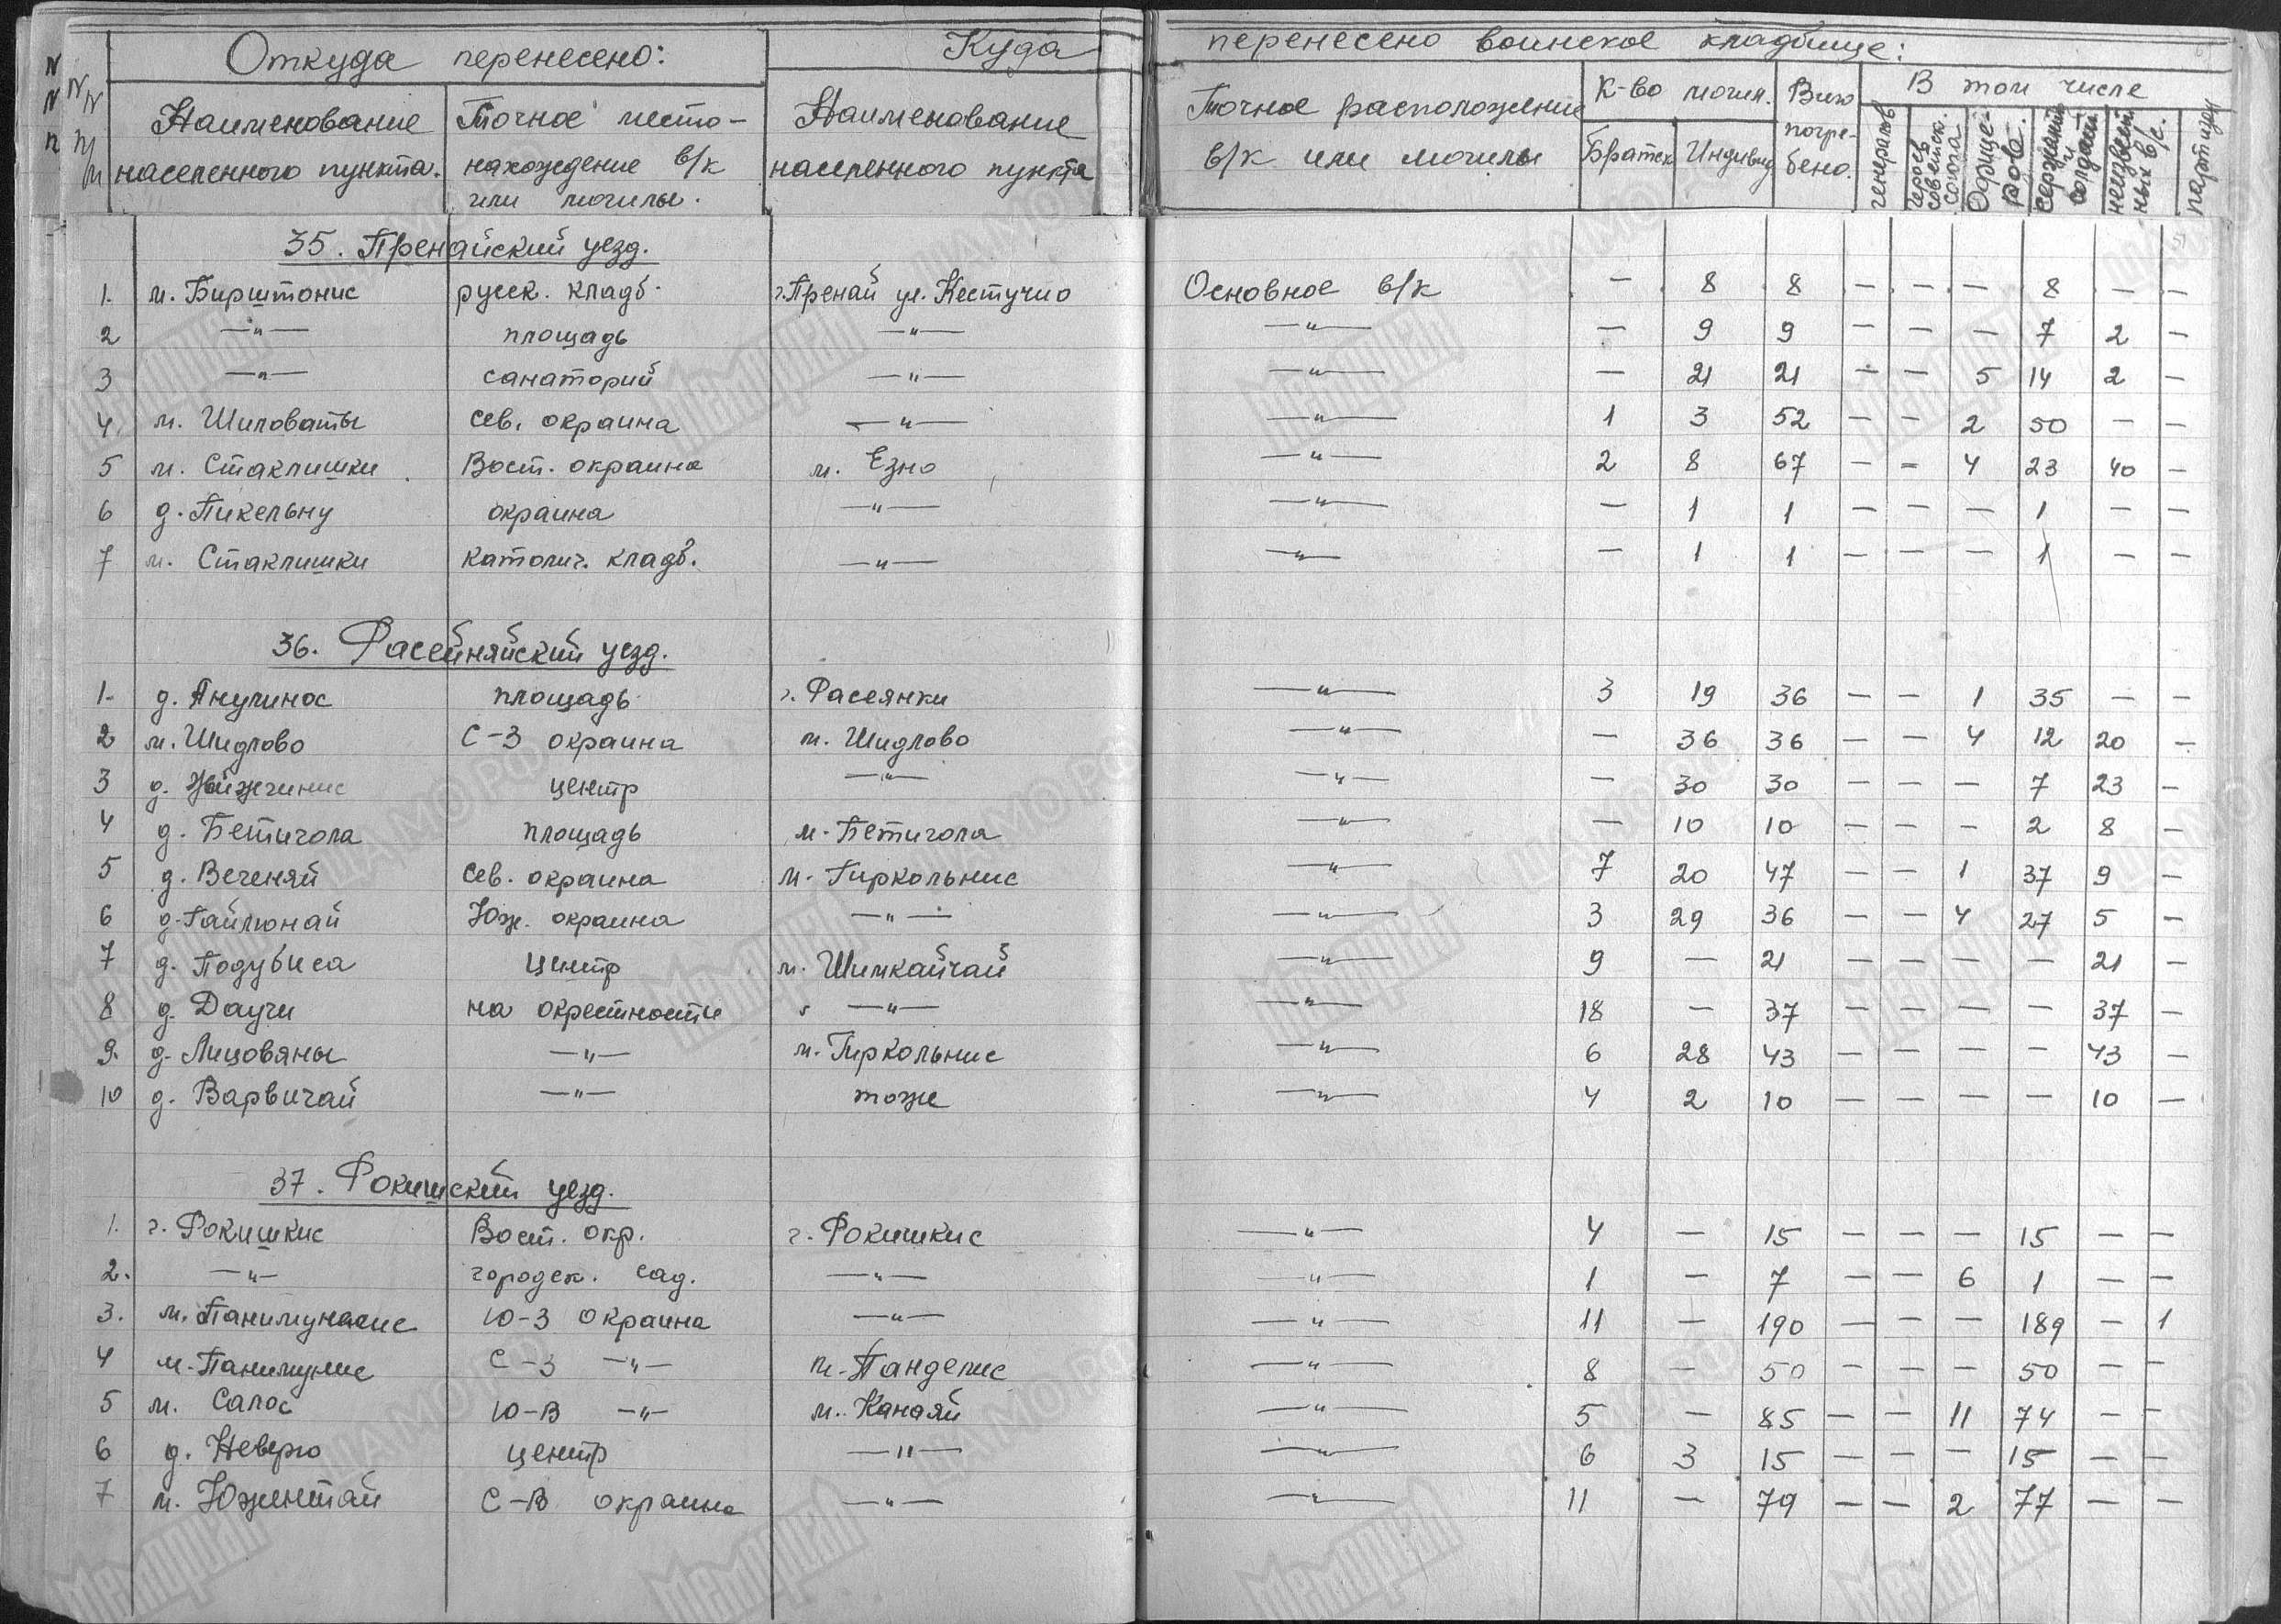 Откуда перенесено: Куда перенесено воинское кладбище:
N N п N N п/п
Наименование населенного пункта.
Точное местонахождение в/к или могилы.
Наименование населенного пункта
Точное расположение в/к или могилы
К-во могил.
Братск Индивид
Всего погребено.
В том числе
генералов
героев советск. союза
Офицеров.
сержантов и солдат
неизвестных в/с.
партизан
35. Пренайский уезд.
1. м. Бирштонис русск. кладб. г. Пренай ул. Кестучио Основное в/к – 8 8 – – – 8 – –
2 —"— площадь —"— —"— – 9 9 – – – 7 2 –
3 —"— санаторий —"— —"— – 21 21 – – 5 14 2 –
4. м. Шиловаты сев. окраина —"— —"— 1 3 52 – – 2 50 – –
5 м. Стаклишки Вост. окраина м. Езно —"— 2 8 67 – – 4 23 40 –
6 д. Пикельну окраина —"— —"— – 1 1 – – – 1 – –
7 м. Стаклишки католич. кладб. —"— —"— – 1 1 – – – 1 – –
36. Рассейняйский уезд.
1. д. Анулинос площадь г. Рассянки —"— 3 19 36 – – 1 35 – –
2 м. Шидлово С-З окраина м. Шидлово —"— – 36 36 – – 4 12 20 –
3 д. центр —"— —"— – 30 30 – – – 7 23 –
4 д. Бетигола площадь м. Бетигола —"— – 10 10 – – – 2 8 –
5 д. Веченяй Сев. окраина м. Гиркольнис —"— 7 20 47 – – 1 37 9 –
6 д. Гайлюнай Юж. окраина —"— —"— 3 29 36 – – 4 27 5 –
7 д. Подубиса Центр м. Шимкайчай —"— 9 – 21 – – – – 21 –
8 д. Даучи на окрестности —"— —"— 18 – 37 – – – – 37 –
9. д. Лицовяны —"— м. Гиркольнис —"— 6 28 43 – – – – 43 –
10 д. Варвичай —"— тоже —"— 4 2 10 – – – – 10 –
37. Рокишский уезд.
1. г. Рокишкис Вост. окр. г. Рокишкис —"— 4 – 15 – – – 15 – –
2. —"— городск. сад. —"— —"— 1 – 7 – – 6 1 – –
3. м. Ю-З окраина —"— —"— 11 – 190 – – – 189 – 1
4 м. Панимунис С-З —"— м. Панделис —"— 8 – 50 – – – 50 – –
5 м. Салос Ю-В —"— м. Канаяй —"— 5 – 85 – – 11 74 – –
6 д. Неверю центр —"— —"— 6 3 15 – – – 15 – –
7 м. Южентай С-В окраина —"— —"— 11 – 79 – – 2 77 – –